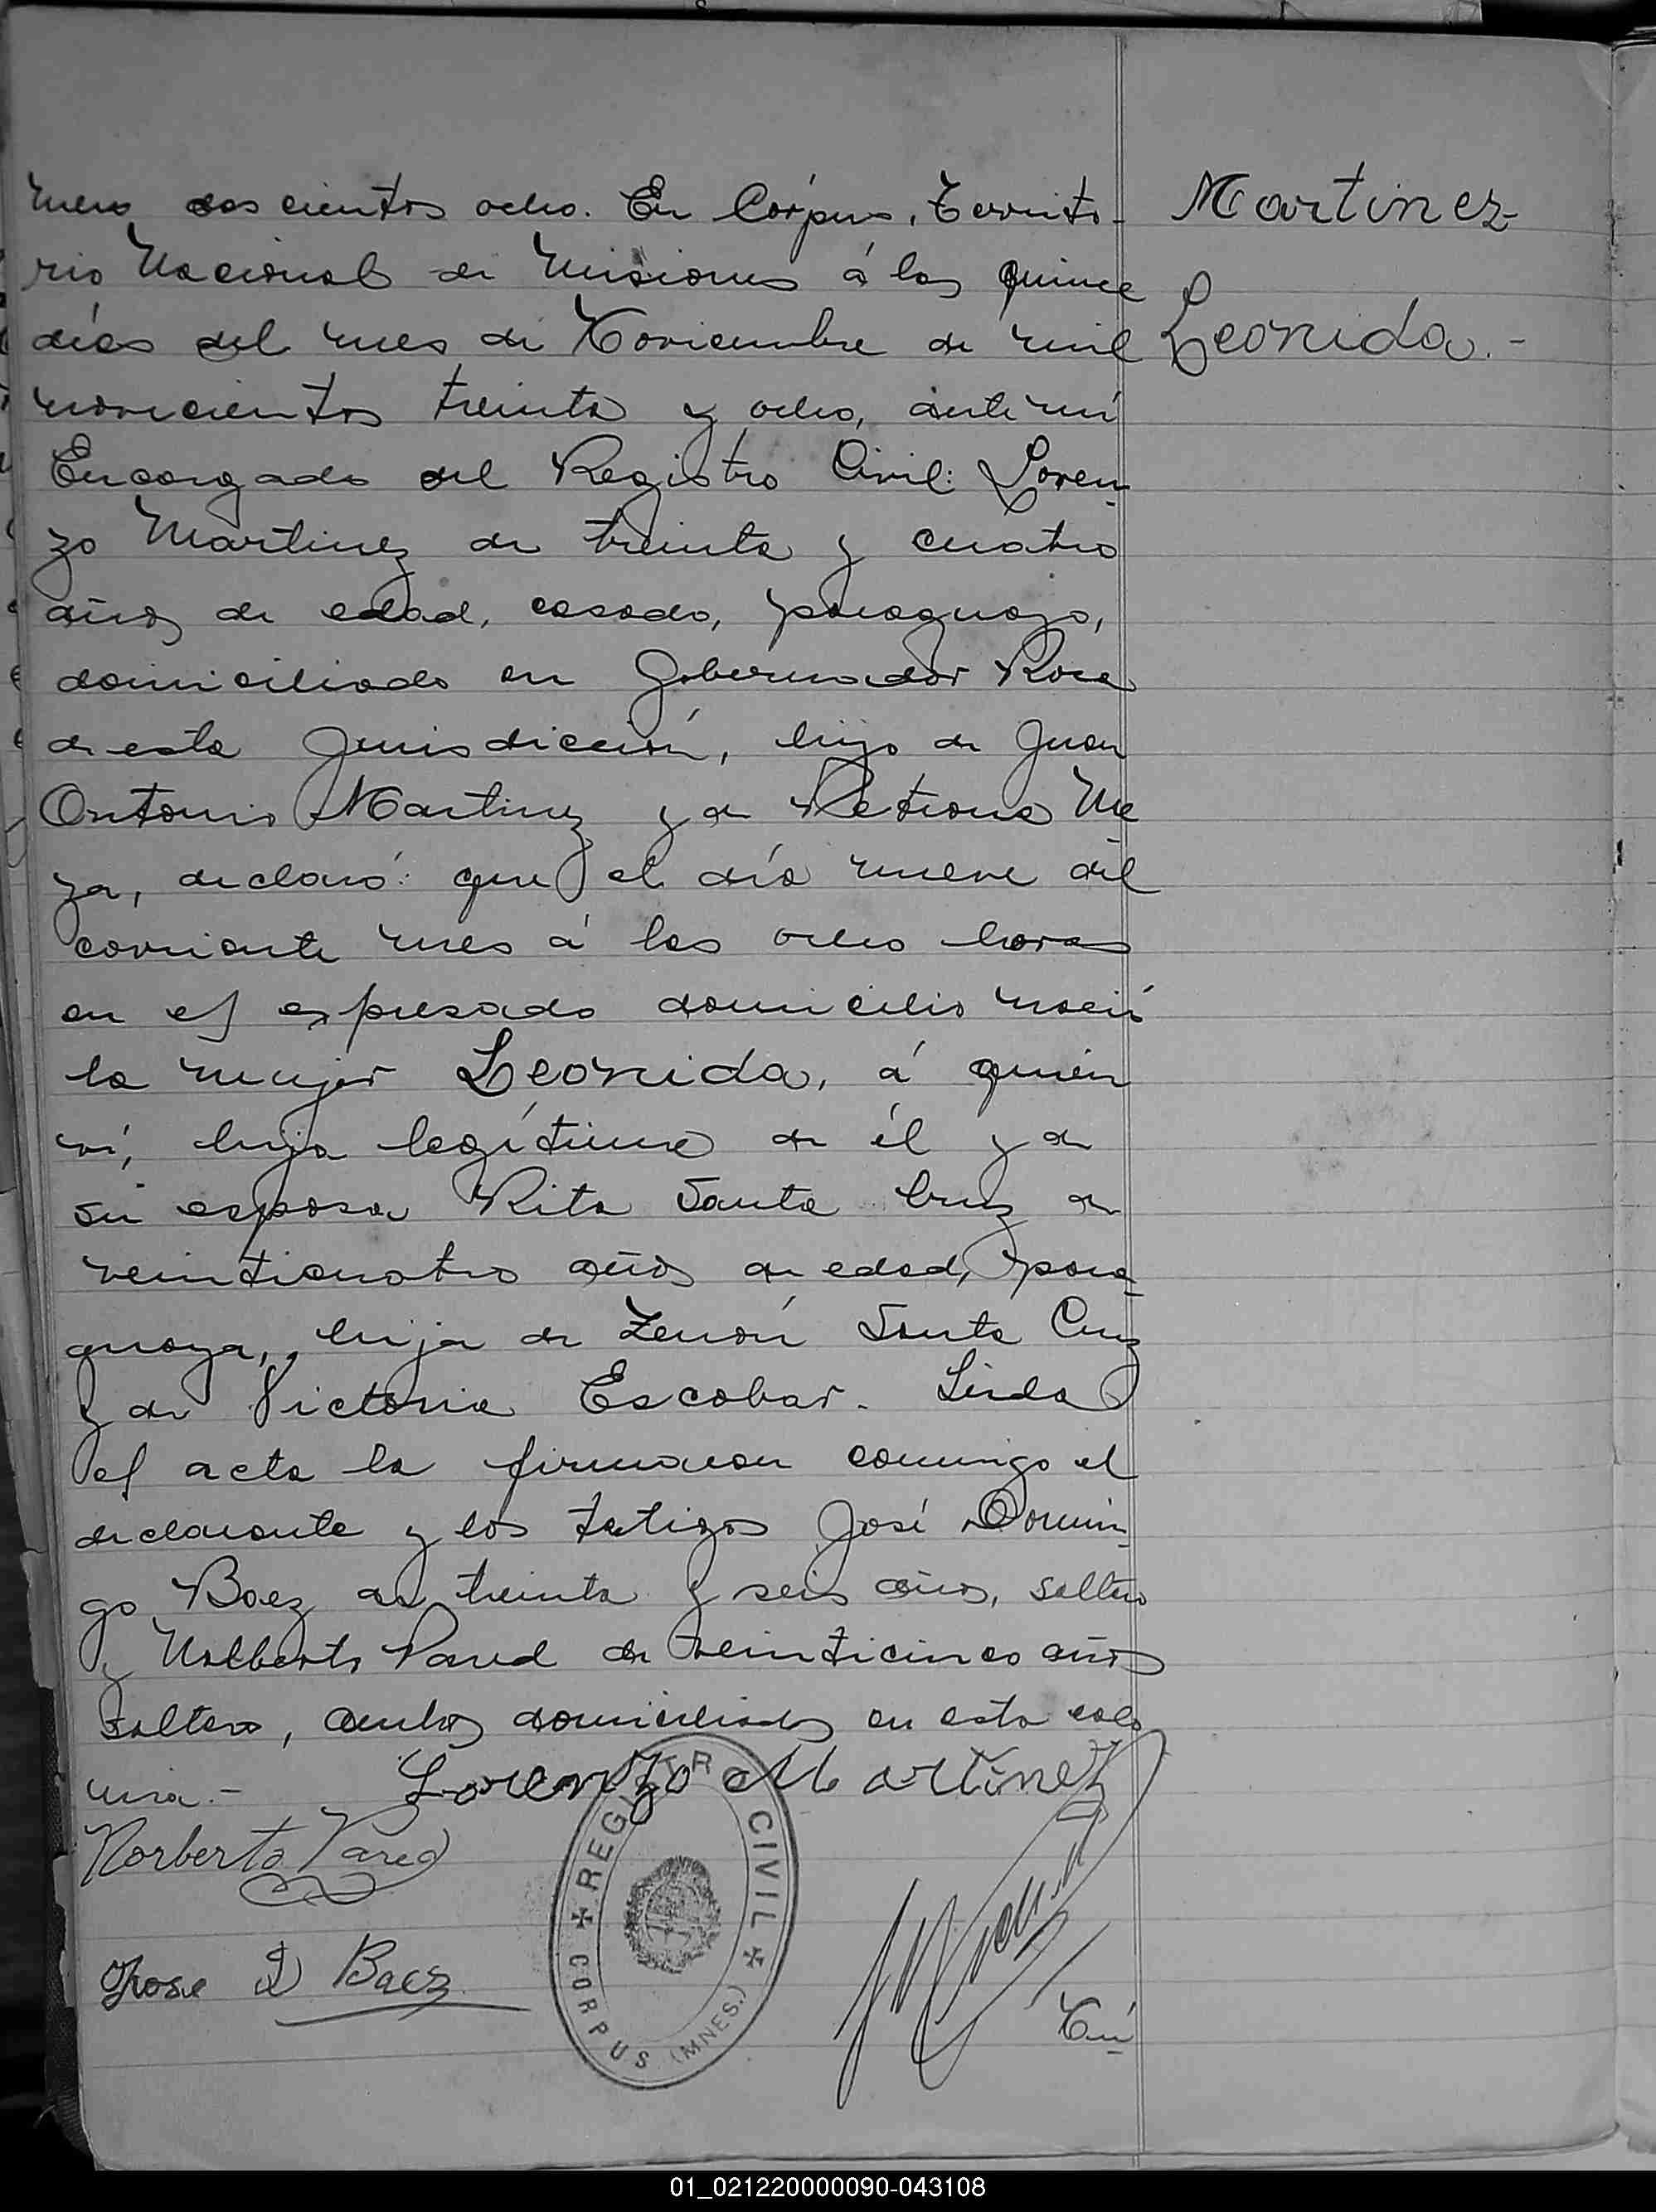 mero dos cientos ocho. En Córpus, Territo-
rio Nacional de Misiones á los quince
días del mes de Noviembre de mil
novecientos treinta y ocho, ante mí
Encargado del Registro Civil: Loren-
zo Martinez de treinta y cuatro
años de edad, casado, paraguayo,
domiciliado en Gobernador Roca
de esta Jurisdicción, hijo de Juan
Antonio Martinez y de Petrona Me
za, declaró: que el día nueve del
corriente mes á las ocho horas
en el expresado domicilio nació
la mujer Leonida, á quien
ví, hija legítima de él y de
su esposa Rita Santa Cruz de
veinticuatro años de edad, para-
guaya, hija de Zenón Santa Cruz
y de Victoria Escobar. Leida
el acta la firmaron conmigo el
declarante y los testigos José Domin-
go Baez de treinta y seis años, soltero
y Norberto Pared de veinticinco años
soltero, ambos domiciliados en esta colo
nia.-
Martinez
Leonida.-
Lorenzo Martinez
Norberto Pared
Jose D Baez
REGISTRO CIVIL
CORPUS (MNES.)
01_021220000090-043108